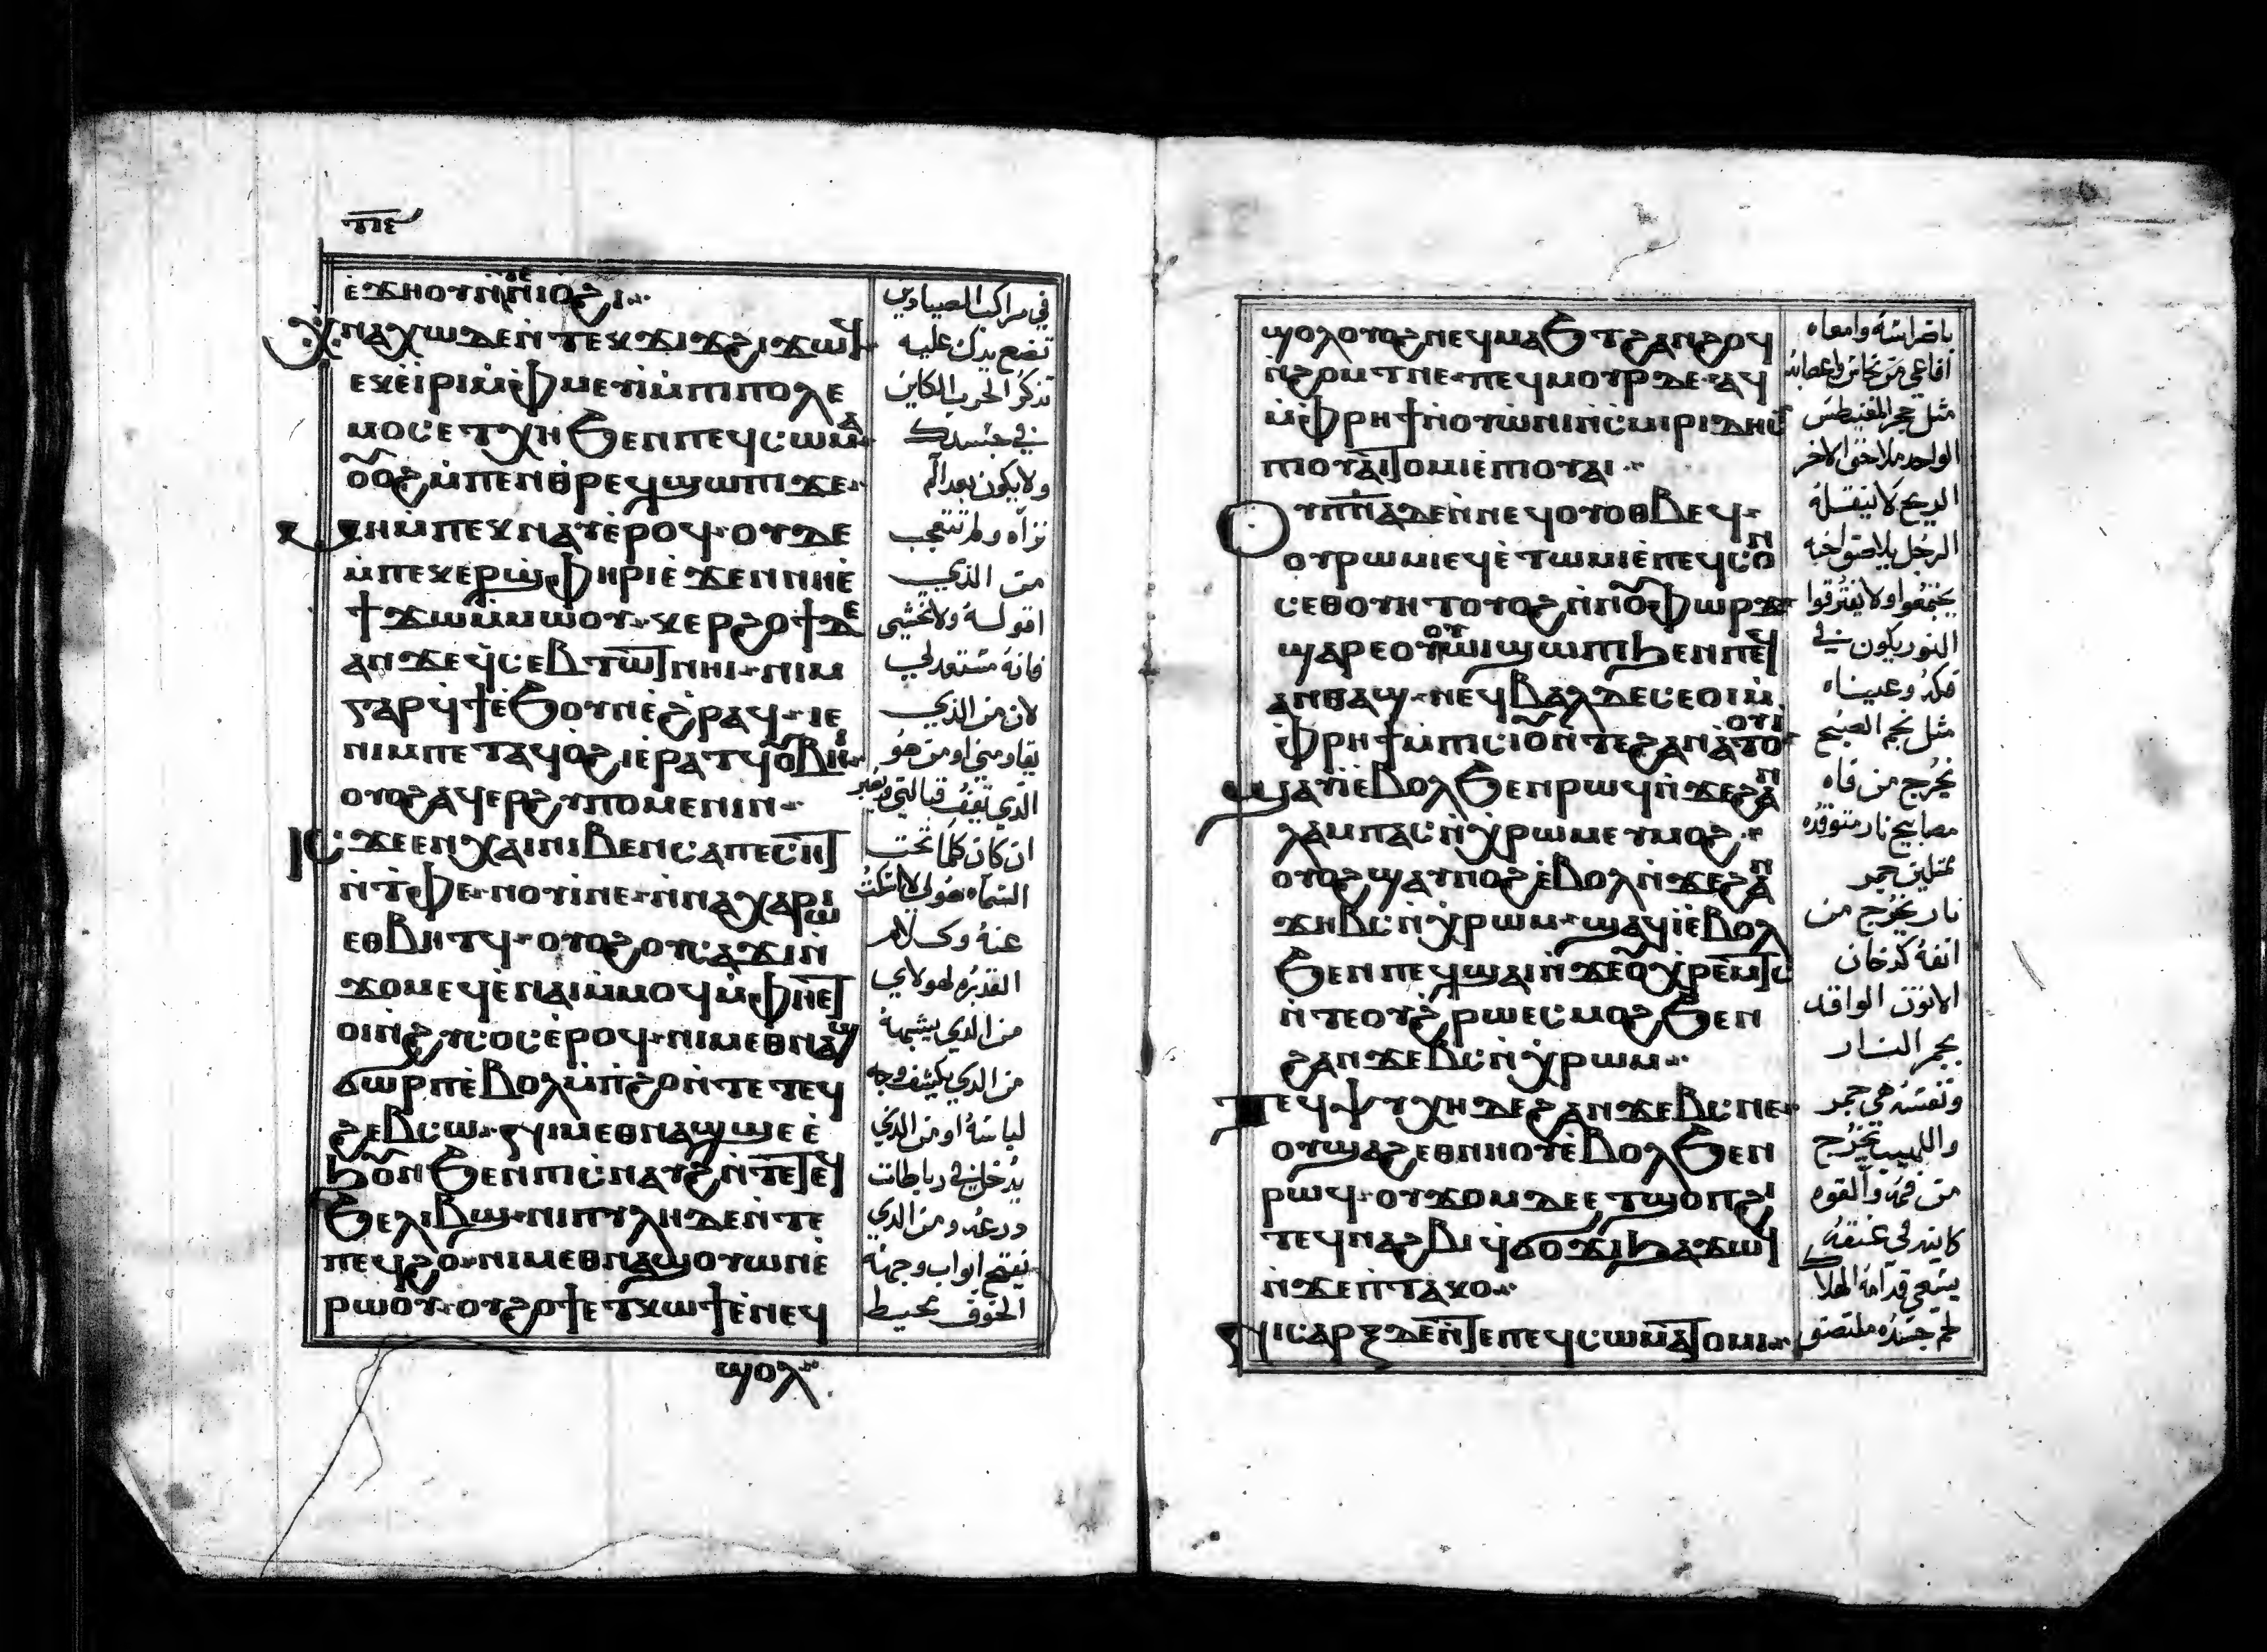 ⲡⲉ
ⲉϫⲏⲟⲩⲛⲛⲓⲟϩⲓ
ⲭⲛⲁⲭⲱⲇⲉⲛⲧⲉⲕϫⲓϫϩⲓϫⲱϥ
ⲉⲕⲉⲓⲣⲓⲙⲫⲙⲉⲩⲓⲙⲡⲓⲡⲟⲗⲉ
ⲙⲟⲥⲉⲧⲭⲏϧⲉⲛⲡⲉϥⲥⲱⲙⲁ
ⲟⲟϩⲙⲡⲉⲛⲑⲣⲉϥϣⲱⲡⲓϫⲉ
ⲙⲡⲉⲕⲛⲁⲩⲉⲣⲟϥⲟⲩⲇⲉ
ⲙⲡⲉⲕⲉⲣϣⲫⲏⲣⲓⲉϫⲉⲛⲛⲏⲉ
ϯϫⲱⲙⲙⲱⲟⲩⲕⲉⲣϩⲟϯⲇⲉ
ⲁⲛϫⲉϥⲥⲉⲃⲧⲱⲧⲛⲏⲓⲛⲓⲙ
ⲅⲁⲣϥϯⲉϧⲟⲩⲛⲉϩⲣⲁϥⲓⲉ
ⲛⲓⲙⲡⲉⲧⲁϥⲟϩⲓⲉⲣⲁⲧϥⲟⲃⲏⲓ
ⲟⲩⲟϩⲁϥⲉⲣϩⲩⲡⲟⲙⲉⲛⲓⲛ
ⲓⲥϫⲉⲉⲛⲭⲁⲓⲛⲓⲃⲉⲛⲥⲁⲡⲉⲥⲏⲧ
ⲛⲧⲫⲉⲛⲟⲩⲓⲛⲉⲛⲛⲁⲭⲁⲣⲱ
ⲉⲑⲃⲏⲧϥⲟⲩⲟϩⲟⲩⲥⲁϫⲓⲛ
ϫⲟⲙⲉϥⲉⲛⲁⲓⲙⲙⲟϥⲙⲫⲏⲉⲧ
ⲟⲓⲛϩⲩⲥⲟⲥⲉⲣⲟϥⲛⲓⲙⲉⲑⲛⲁϣ
ϭⲱⲣⲡⲉⲃⲟⲗⲙⲡϩⲟⲛⲧⲉⲧⲉϥ
ϩⲉⲃⲥⲱⲛⲓⲙⲉⲑⲛⲁϣϣⲉⲉ
ϧⲟⲛϧⲉⲛⲡⲓⲥⲛⲁⲩϩⲛⲧⲉⲧⲉϥ
ϧⲉⲗⲓⲃϣⲛⲓⲡⲩⲗⲏⲇⲉⲛⲧⲉ
ⲡⲉϥϩⲟⲛⲓⲙⲉⲑⲛⲁϣⲟⲩⲱⲛⲉ
ⲣⲱⲟⲩⲟⲩϩⲟϯⲉⲧⲕⲱϯⲉⲛⲉϥ
ϣⲟⲗ
في مراكب الصيادين
تضع يدك عليه
تذكر الحرب الكاين
في جسدك
ولا يكون بعد الم
تراه ولم تتعجب
من الذي
اقوله ولا تخشى
فانه مستعد لي
لان من الذي
يقاومني او من هو
الذي تقف قبالتي
ان كان كلما تحت
السماء هو لي لا اسكت
عنه وكلام
القدره لهولاي
من الذي يشبهه
من الذي يكشف وجه
لباسه او من الذي
يدخل في رباطات
درعه ومن الذي
يفتح ابواب وجهه
الخوف محيط
ϣⲟⲗⲟⲩⲟϩⲛⲉϥⲙⲁϧⲧϩⲁⲛϩⲟϥ
ⲛϩⲟⲙⲧⲛⲉⲡⲉϥⲙⲟⲩⲣⲇⲉⲁϥ
ⲙⲫⲣⲏϯⲛⲟⲩⲱⲛⲓⲛⲥⲙⲓⲣⲓⲇⲏⲥ
ⲡⲓⲟⲩⲁⲓⲧⲟⲙⲓⲉⲡⲓⲟⲩⲁⲓ
ⲟⲩⲡⲛⲁⲇⲉⲛⲛⲉϥⲟⲩⲟⲑⲃⲉϥ
ⲟⲩⲣⲱⲙⲓⲉϥⲉⲧⲱⲙⲓⲉⲡⲉϥⲥⲟⲛ
ⲥⲉⲑⲟⲩⲏⲧⲟⲩⲟϩⲛⲛⲟⲩⲫⲱⲣϫ
ϣⲁⲣⲉⲟⲩⲟⲩⲱⲓⲛⲓϣⲱⲡⲓϧⲉⲛⲡⲉϥ
ⲁⲛⲑⲁϣⲛⲉϥⲃⲁⲗⲇⲉⲥⲉⲟⲓⲙ
ⲫⲣⲏϯⲙⲡⲥⲓⲟⲩⲛⲧⲉϩⲁⲛⲁⲧⲟⲟⲩⲓ
ϣⲁⲩⲓⲉⲃⲟⲗϧⲉⲛⲣⲱϥⲛϫⲉϩⲁⲛ
ⲗⲁⲙⲡⲁⲥⲛⲭⲣⲱⲙⲉⲩⲙⲟϩ
ⲟⲩⲟϩϣⲁⲩⲡⲟϩⲉⲃⲟⲗⲛϫⲉϩⲁⲛ
ϫⲏⲃⲥⲛⲭⲣⲱⲙϣⲁϥⲓⲉⲃⲟⲗ
ϧⲉⲛⲡⲉϥϣⲁⲓⲛϫⲉⲟⲩⲭⲣⲉⲙⲧⲥ
ⲛⲧⲉⲟⲩϩⲣⲱⲉⲥⲙⲟϩϧⲉⲛ
ϩⲁⲛϫⲉⲃⲥⲛⲭⲣⲱⲙ
ⲧⲉϥⲯⲩⲭⲏⲇⲉϩⲁⲛϫⲉⲃⲥⲛⲉ
ⲟⲩϣⲁϩⲉⲑⲛⲏⲟⲩⲉⲃⲟⲗϧⲉⲛ
ⲣⲱϥⲟⲩϫⲟⲙⲇⲉⲉⲧϣⲟⲡϩⲓ
ⲧⲉϥⲛⲁϩⲃⲓϥϭⲟϫⲓϧⲁϫⲱϥ
ⲛϫⲉⲡⲧⲁⲕⲟ
ⲛⲓⲥⲁⲣⲝⲇⲉⲛⲧⲉⲡⲉϥⲥⲱⲙⲁⲧⲟⲙⲓ
باضراسه وامعاه
افاعي من نحاس واعصابه
مثل حجر المغنيطس
الواحد ملاصق الاخر
الريح لا ينفسله
الرجل يلاصق اخيه
يجتمعوا ولا يفترقوا
النور يكون في
فكه وعيناه
مثل نجم الصبح
يخرج من فاه
مصابيح نار متوقده
جمر
نار يخرج من
انفه كدخان
الاتون الواقد
بجمر النار
ونفسه هي جمر
واللهيب يخرج
من فمه والقوه
كاينه في عنقه
يسعى قدامه الهلاك
لحم جسده ملتصق